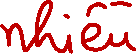 nhiễu